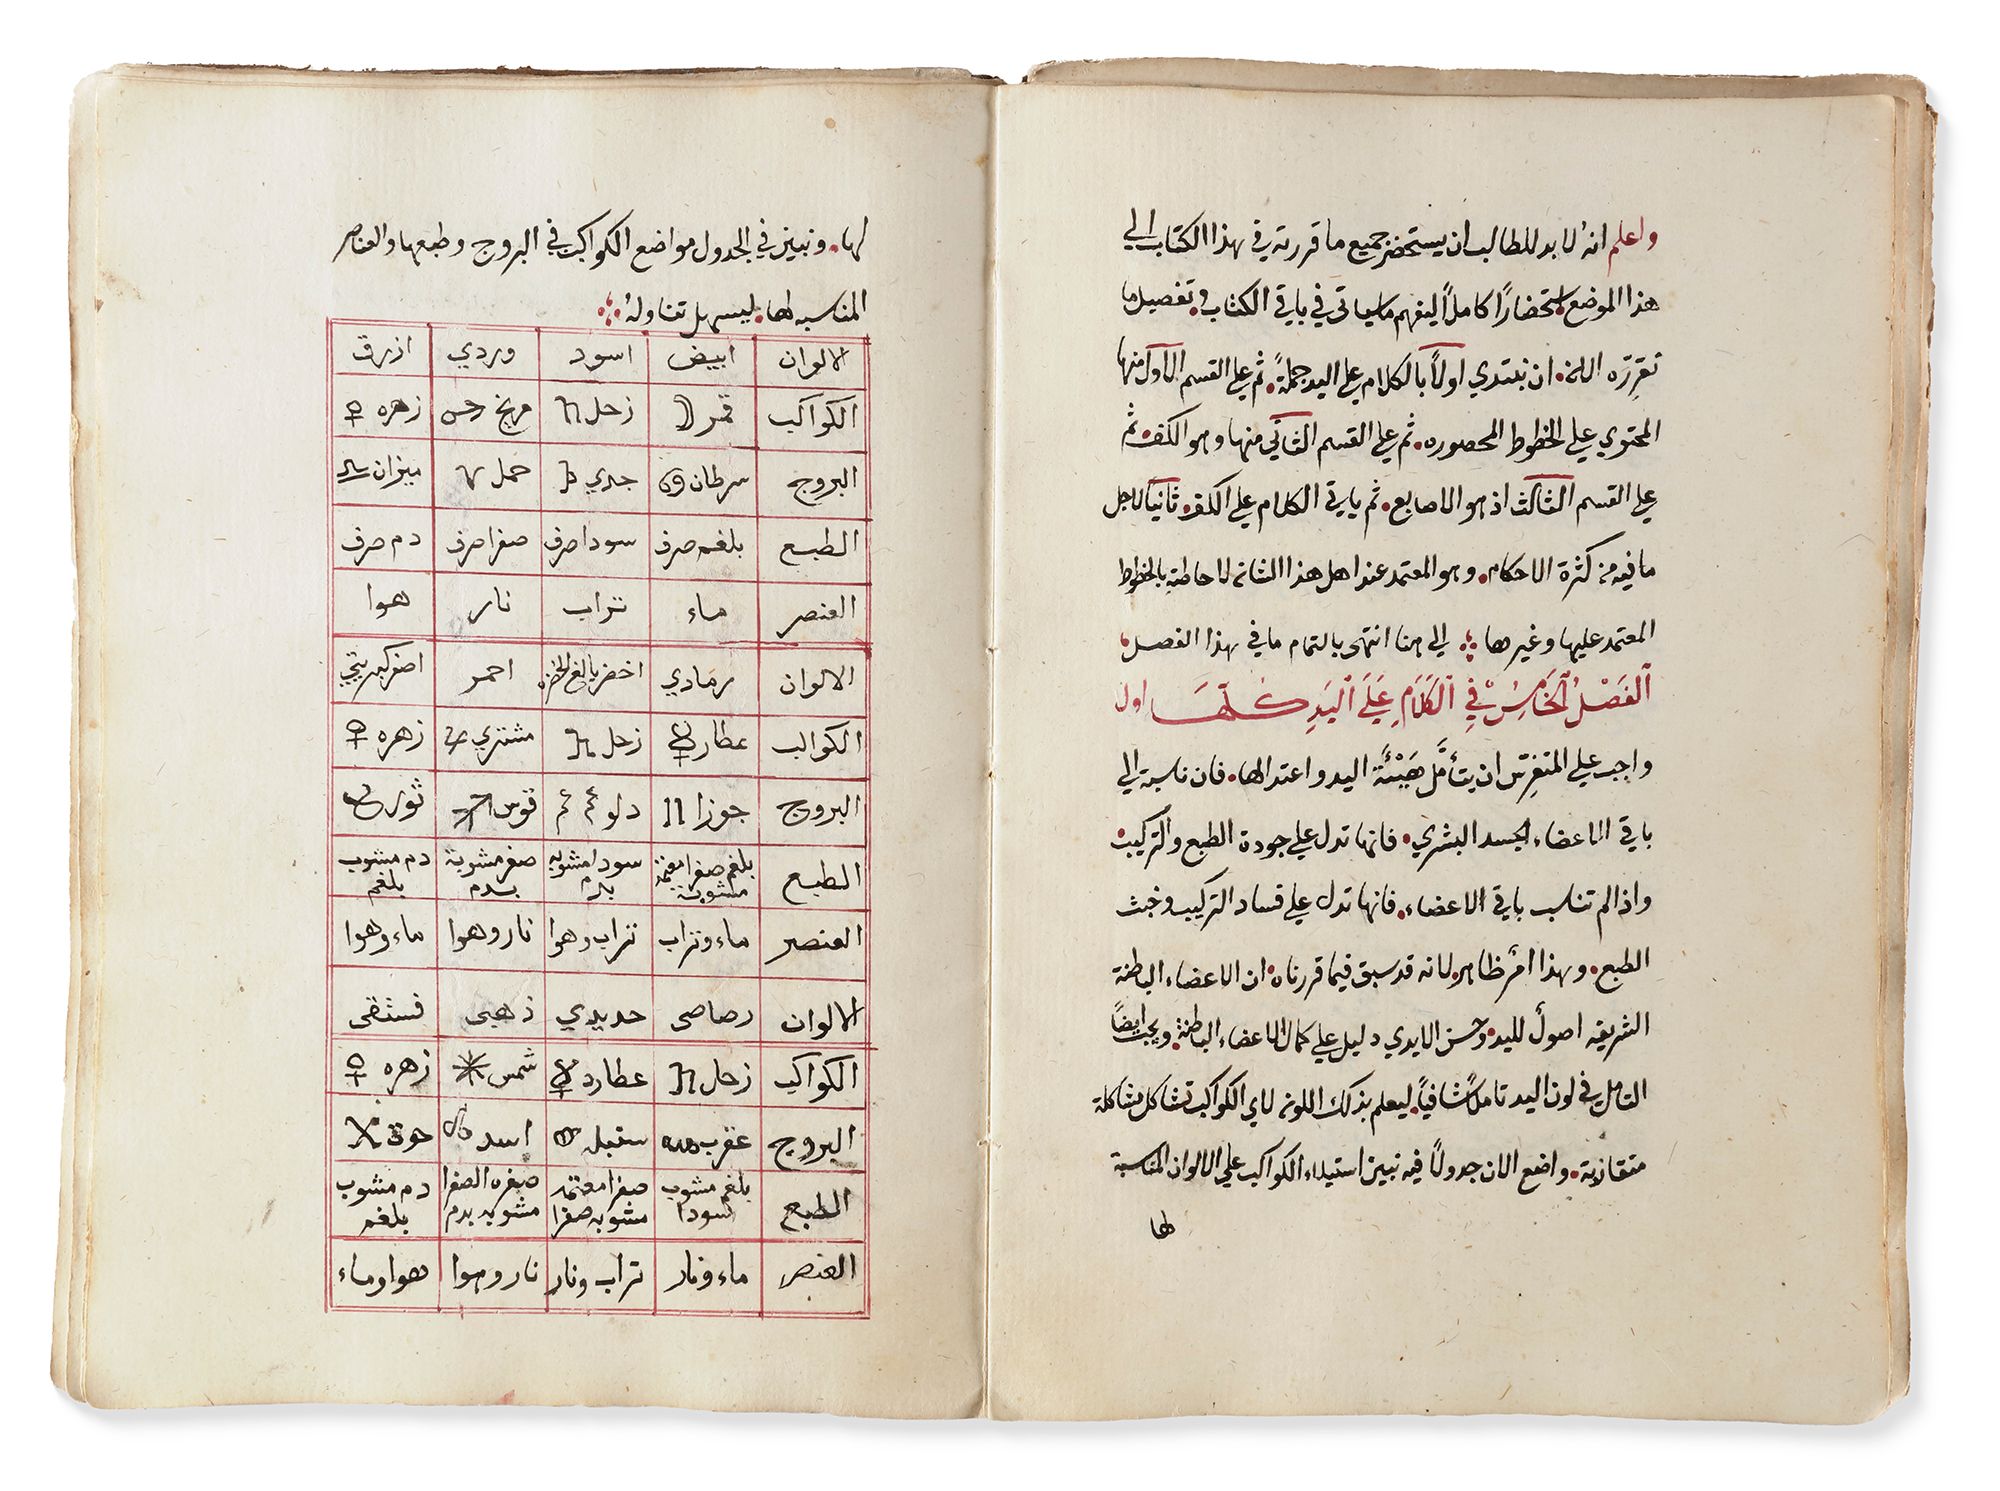 واعلم انه لا بد للطالب ان يستحضر جميع ما قررته في هذا الكتاب الي
هذا الموضع استحضارًا كاملًا ليفهم ما سياتي في باقي الكتاب وتفصيل ما
نقرّره الان. ان نبتدي اولًا بالكلام علي اليد جملةً. ثم علي القسم الاول منها
المحتوي علي الخطوط المحصوره. ثم علي القسم الثاني منها وهو الكف ثم
علي القسم الثالث اذ هو الاصابع. ثم ياتي الكلام علي الكف ثانيًا لاجل
ما فيه من كثرة الاحكام. وهو المعتمد عند اهل هذا الشان لاحاطته بالخطوط
المعتمد عليها وغيرها ؞ الي هنا انتهي بالتمام ما في هذا الفصل
الفَصْلُ الخَامِسُ فِي الكَلَامِ عَلَى اليَدِ كلّهَا اول
واجب علي المتفرّس ان يتأمَّل هَيْئَة اليد واعتدالها. فان ناسبة الي
باقي الاعضاء الجسد البشري. فانها تدل علي جودة الطبع والتركيب
واذا لم تناسب باقي الاعضاء. فانها تدل علي فساد التركيب وخبث
الطبع. وهذا امر ظاهر لانه قد سبق فيما قررناه ان الاعضاء الباطنة
الشريفه اصولٌ لليد وحسن الايدي دليل علي كمال الاعضاء الباطنة. ويجب ايضًا
التامل في لون اليد تاملًا شافيًا. ليعلم بذلك اللون لاي الكواكب تشاكل مشاكلة
متقاربة. واضع الان جدولًا فيه نبين استيلاء الكواكب علي الالوان المناسبة
لها
لها. ونبين في الجدول مواضع الكواكب في البروج وطبعها والعناصر
المناسبه لها. ليسهل تناوله ؞
الالوان ابيض اسود وردي ازرق
الكواكب قمر زحل مريخ زهره ♀
البروج سرطان جدي حمل ميزان
الطبع بلغم صرف سودا صرف صفرا صرف دم صرف
العنصر ماء تراب نار هوا
الالوان رمادي اخضر بالغ الخضره احمر اصفر كبريتي
الكواكب عطارد زحل مشتري زهره ♀
البروج جوزا دلو قوس ثور
الطبع بلغم صفرا معتمه مشوبة سودا مشوبه بدم صفر مشوبة بدم دم مشوب بلغم
العنصر ماء وتراب تراب وهوا نار وهوا ماء وهوا
الالوان رصاصي حديدي ذهبي فستقي
الكواكب زحل عطارد شمس زهره ♀
البروج عقرب سنبله اسد حوت
الطبع بلغم مشوب سودا صفرا معتمه مشوبه صفرا صفره الصفرا مشوبه بدم دم مشوب بلغم
العنصر ماء ونار تراب ونار نار وهوا هوا وماء